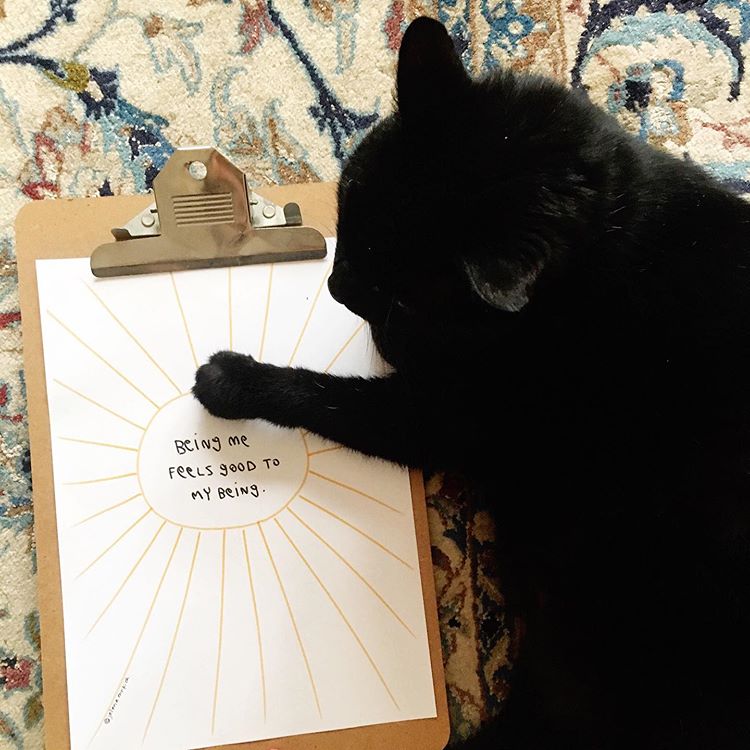 Being me
FEELS gOOD TO
MY BeiNg.